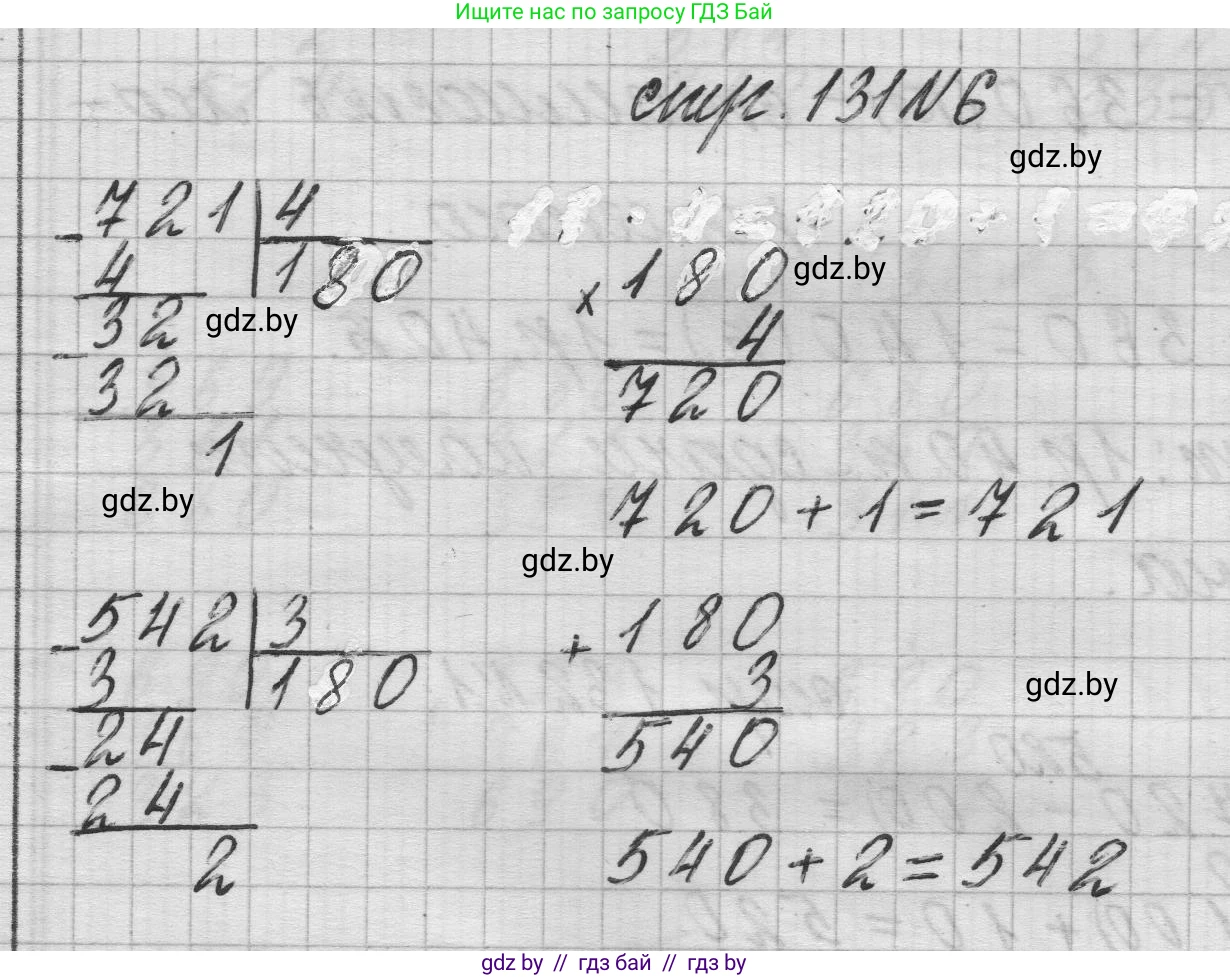 Ищите нас по запросу ГДЗ Бай
стр. 131 N 6
gdz.by
- 721 | 4
4 | 180
32
- 32
1
gdz.by
× 180
4
720
gdz.by
720 + 1 = 721
gdz.by
gdz.by
- 542 | 3
3 | 180
- 24
24
2
+ 180
3
540
gdz.by
540 + 2 = 542
gdz by // гдз бай // гдз by